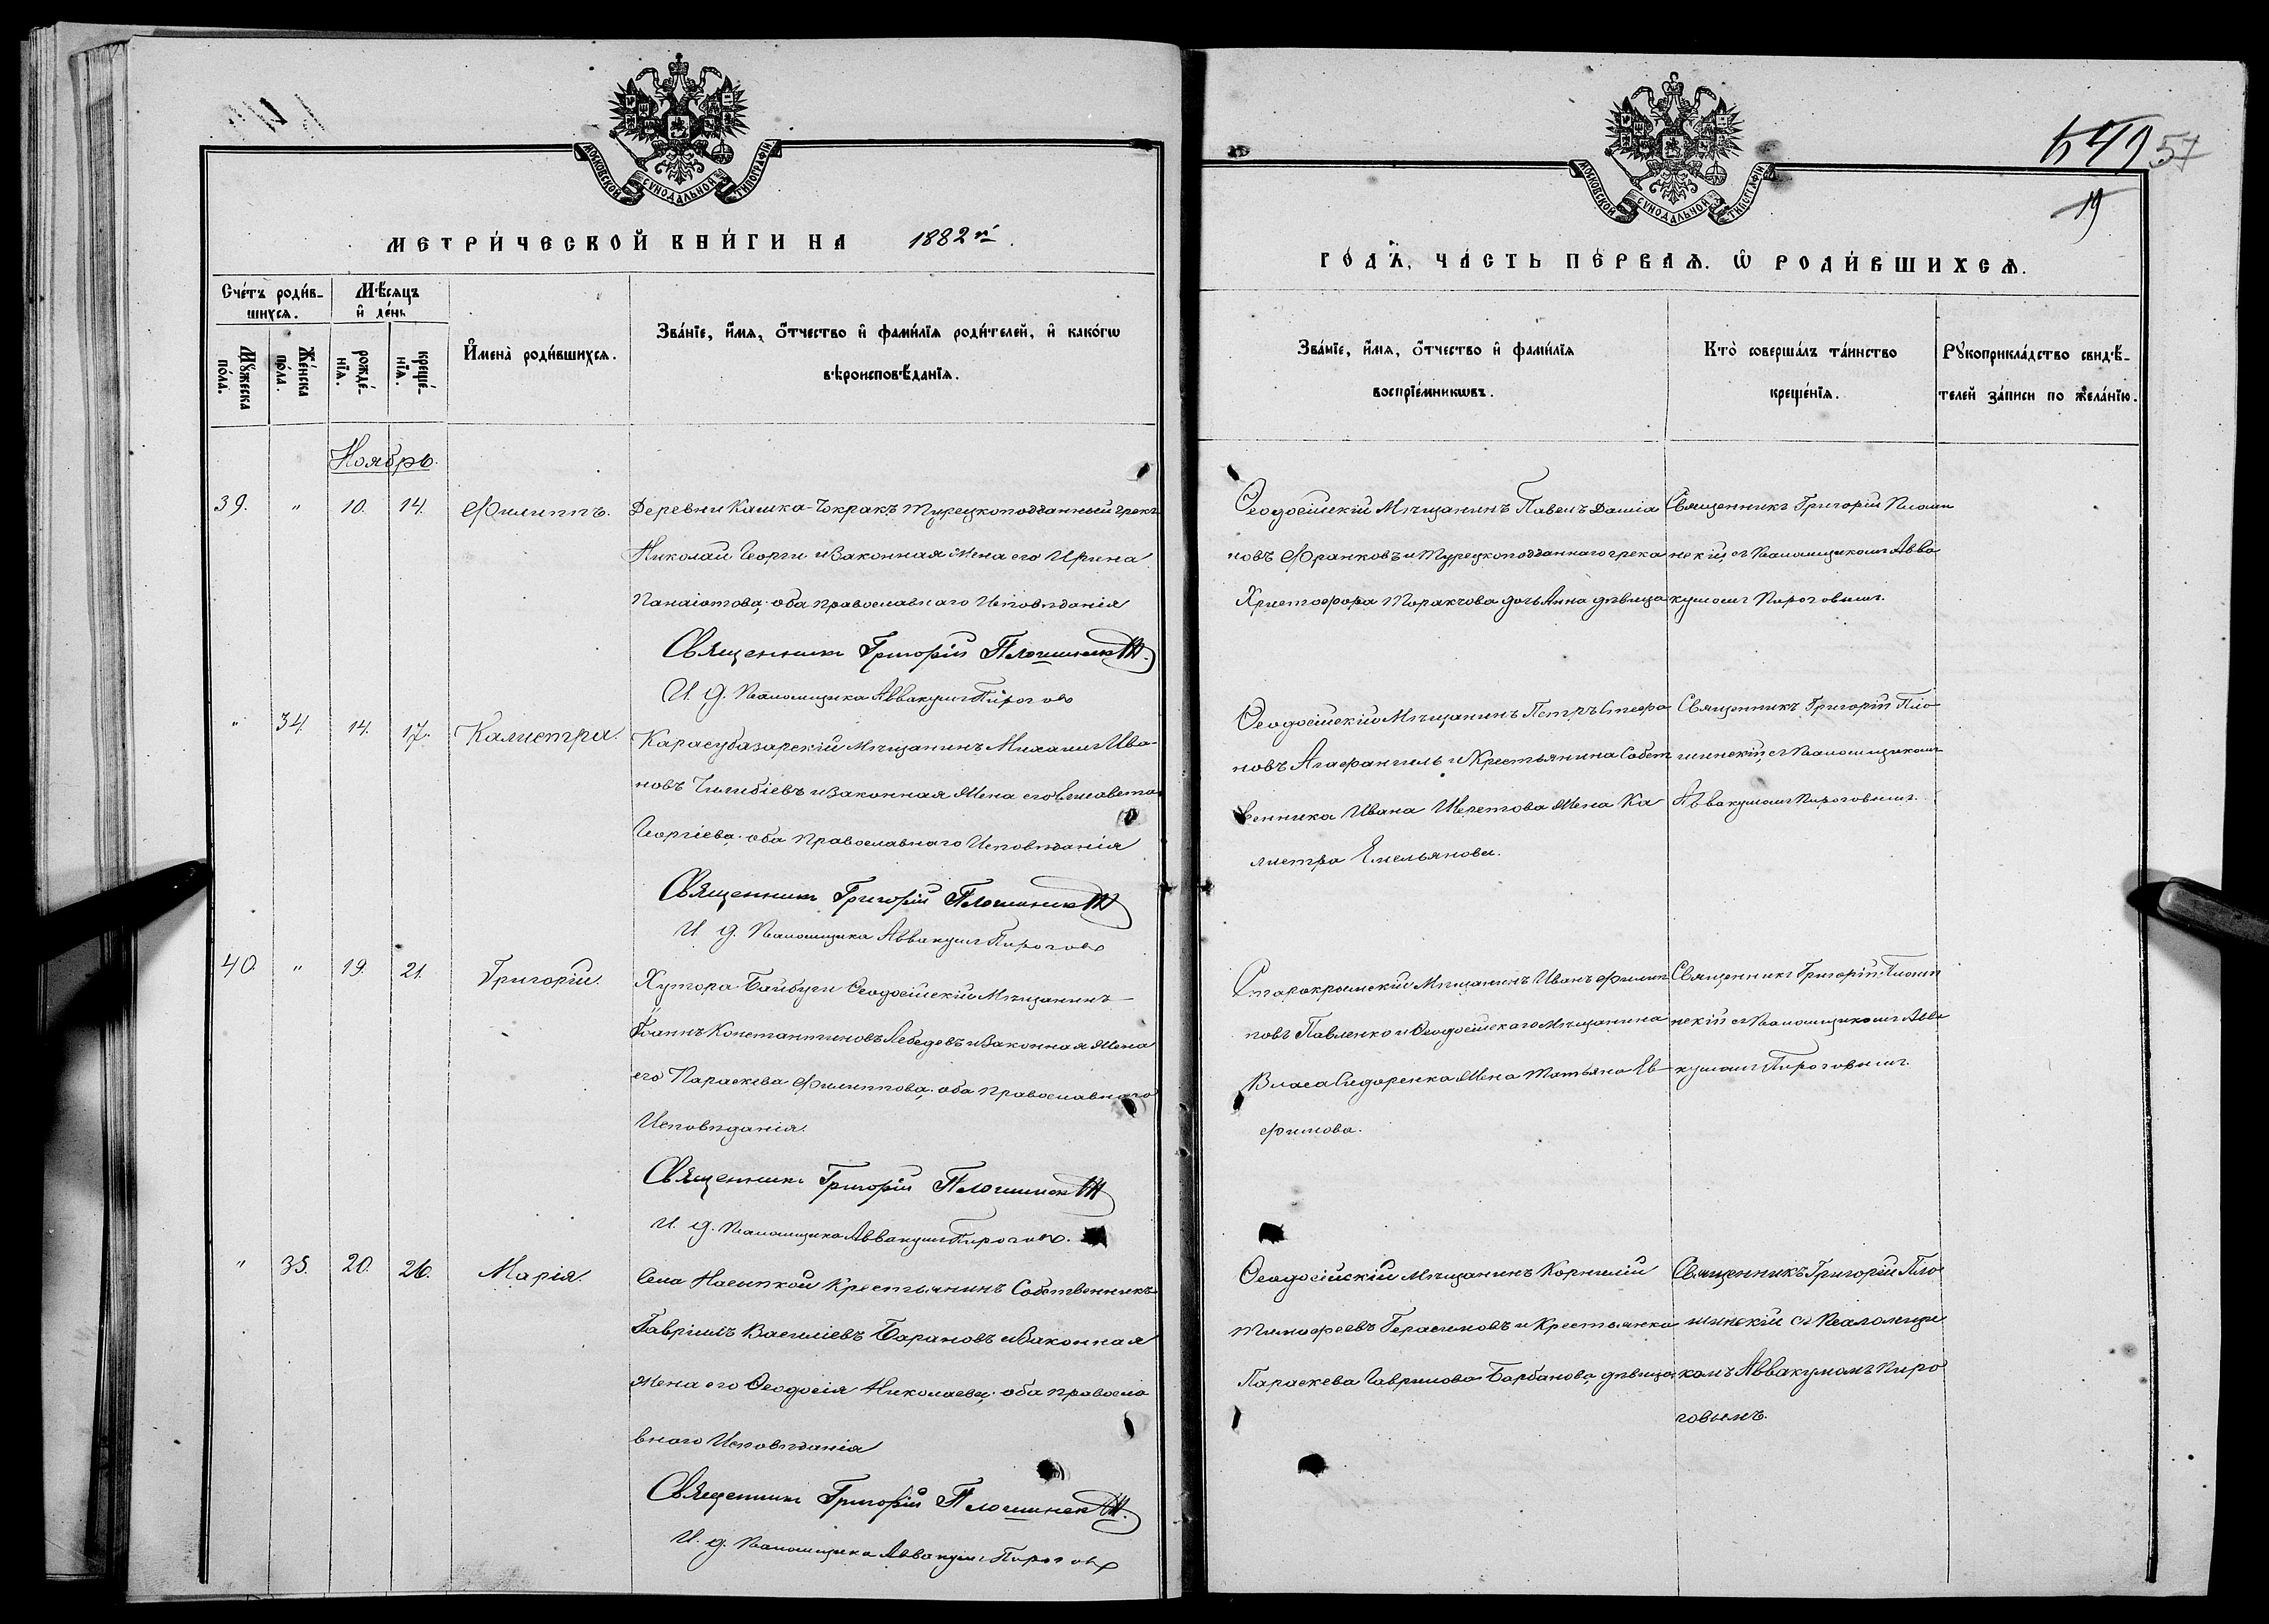 МОСКОВСКОЙ СѴНОДАЛЬНОЙ ТИПОГРАФІИ
МЕТРИ́ЧЕСКОЙ КНИ́ГИ НА 1882й.
Сче́тъ роди́в-
шихсѧ.
Мѣ́сѧцъ
и҆ де́нь
Мꙋ́жеска по́ла.
Же́нска по́ла.
рожде́-
нїѧ.
креще́-
нїѧ.
И҆мена̀ роди́вшихсѧ.
Зва́нїе, и҆́мѧ, ѻ҆́тчество и҆ фами́лїѧ роди́телей, и҆ како́гѡ
вѣроисповѣ́данїѧ.
Ноябрь.
39. " 10. 14. Филиппъ.
Деревни Кашка-Чокракъ Турецкоподданный грекъ
Николай Георги и Законная Жена его Ирина
Панаіотова, оба православнаго Исповѣданія
Священникъ Григорій Плошинскій.
И. д. Псаломщика Аввакумъ Пироговъ
" 34. 14. 17. Калистра.
Карасубазарскій Мѣщанинъ Михаилъ Ива-
новъ Чилибіевъ и Законная Жена его Елисавета
Георгіева, оба Православнаго Исповѣданія
Священникъ Григорій Плошинскій
И. д. Псаломщика Аввакумъ Пироговъ
40. " 19. 21. Григорій.
Хутора Байбуги Ѳеодосійскій Мѣщанинъ
Іоаннъ Константиновъ Лебедевъ и Законная Жена
его Параскева Филиппова, оба православнаго
Исповѣданія.
Священникъ Григорій Плошинскій
И. д. Псаломщика Аввакумъ Пироговъ.
" 35. 20. 26. Марія.
Села Насыпкой Крестьянинъ Собственникъ
Гавріилъ Василіевъ Барановъ и Законная
Жена его Ѳеодосія Николаева, оба правосла
внаго Исповѣданія
Священникъ Григорій Плошинскій.
И. д. Псаломщика Аввакумъ Пироговъ
57
19
МОСКОВСКОЙ СѴНОДАЛЬНОЙ ТИПОГРАФІИ
ГО́ДЪ, ЧА́СТЬ ПЕ́РВАѦ. Ѡ҆ РОДИ́ВШИХСѦ.
Зва́нїе, и҆́мѧ, ѻ҆́тчество и҆ фами́лїѧ
воспрїе́мникѡвъ.
Кто̀ соверша́лъ та́инство
креще́нїѧ.
Рꙋкоприкла́дство свидѣ́-
телей за́писи по жела́нїю.
Ѳеодосійскій Мѣщанинъ Павелъ Даміа
новъ Франковъ и Турецкоподданнаго грека
Христофора Таракчова дочь Анна дѣвица
Священникъ Григорій Плоши
нскій, съ Псаломщикомъ Авва
кумомъ Пироговымъ.
Ѳеодосійскій Мѣщанинъ Петръ Стефа
новъ Агафангилъ и Крестьянина Собст
венника Ивана Шеретова Жена Ка
листра Емельянова.
Священникъ Григорій Пло
шинскій, съ Псаломщикомъ
Аввакумомъ Пироговымъ.
Старокрымскій Мѣщанинъ Иванъ Филип
повъ Павленко и Ѳеодосійскаго Мѣщанина
Власа Сидоренка Жена Татьяна Ев-
фимова.
Священникъ Григорій Плоши
нскій съ Псаломщикомъ Авва
кумомъ Пироговымъ.
Ѳеодосійскій Мѣщанинъ Корнилій
Тимофеевъ Герасимовъ и Крестьянка
Параскева Гаврилова Барбанова, дѣвица
Священникъ Григорій Пло
шинскій съ Псаломщи
комъ Аввакумомъ Пиро
говымъ.